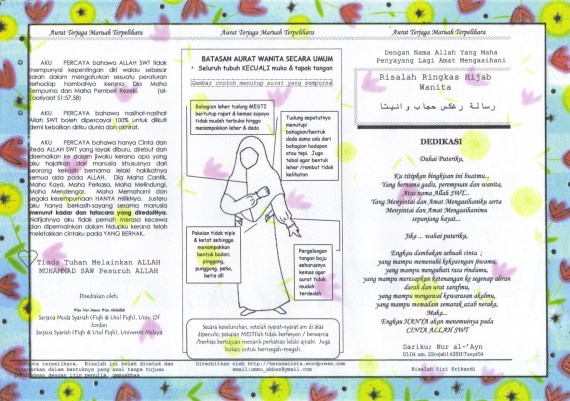 Aurat Terjaga Maruah Terpelihara
AKU PERCAYA bahawa ALLAH SWT tidak
mempunyai kepentingan diri walau sebesar
zarah dalam mengaturkan sesuatu peraturan
terhadap hambaNya kerana Dia Maha
Sempurna dan Maha Pemberi Rezeki. (al-
Zaariyaat 51:57,58)
AKU PERCAYA bahawa nasihat-nasihat
Allah SWT boleh dipercayai 100% untuk diikuti
demi kebaikan diriku dunia dan akhirat.
AKU PERCAYA bahawa hanya Cinta dan
Redha ALLAH SWT yang layak diburu, direbut dan
disemaikan ke dalam jiwaku kerana apa yang
aku hajatkan dari manusia khususnya dari
seorang kekasih bernama lelaki hakikatnya
semua ada pada ALLAH. Dia Maha Cantik,
Maha Kaya, Maha Perkasa, Maha Melindungi,
Maha Mendengar, Maha Memahami dan
segala kesempurnaan HANYA milikNya. Justeru
aku hanya berkasih-sayang sesama manusia
menurut kadar dan tatacara yang diredaiNya.
Natijahnya aku tidak pernah merasa kecewa
dan dipermainkan dalam hidupku kerana telah
meletakkan cintaku pada YANG BERHAK.
Tiada Tuhan Melainkan ALLAH
MUHAMMAD SAW Pesuruh ALLAH
Disediakan oleh;
Sarjana Muda Syariah (Fiqh & Usul Fiqh), Univ. Of
Jordan
Sarjana Syariah (Fiqh & Usul Fiqh), Universiti Malaya
Aurat Terjaga Maruah Terpelihara
BATASAN AURAT WANITA SECARA UMUM
• Seluruh tubuh KECUALI muka & tapak tangan
Gambar contoh menutup aurat yang sempurna
Bahagian leher tudung MESTI
bertutup rapat & kemas supaya
tidak mudah terbuka hingga
menampakkan leher & dada
Tudung sepatutnya
menutupi
bahagian/bentuk
dada sama ada dari
bahagian hadapan
atau tepi. Juga
tebal agar bentuk
leher /rambut tidak
kelihatan
Pakaian tidak nipis
& ketat sehingga
menampakkan
bentuk badan;
pinggang,
punggung, peha,
betis dll
Pergelangan
tangan baju
seharusnya
kemas agar
aurat tidak
mudah
terdedah
Secara keseluruhan, setelah syarat-syarat am di atas
dipenuhi; pakaian MESTIlah tidak berfesyen / bewarna
/berhias bertujuan menarik perhatian lelaki ajnabi. Juga
bukan untuk bermegah-megah.
email:ummu_abbas@ymail.com
Aurat Terjaga Maruah Terpelihara
Dengan Nama Allah Yang Maha
Penyayang Lagi Amat Mengasihani
Risalah Ringkas Hijab
Wanita
DEDIKASI
Duhai Puteriku,
Ku titipkan bingkisan ini buatmu...
Yang bernama gadis, perempuan dan wanita,
Atas nama Allah SWT...
Yang Menyintai dan Amat Mengasihaniku serta
Menyintai dan Amat Mengasihanimu
sepanjang hayat...
Jika ... wahai puteriku,
Engkau dambakan sebuah cinta ;
yang mampu memenuhi kekosongan jiwamu,
yang mampu mengubati rasa rindumu,
yang mampu meresapkan ketenangan ke segenap aliran
darah dan urat sarafmu,
yang mampu menguasai kewarasan akalmu,
yang mampu memadam semarak azab neraka,
Maka...
Engkau HANYA akan menemuinya pada
CINTA ALLAH SWT
Dariku; Nur al-'Ayn
Risalah Siri Srikandi